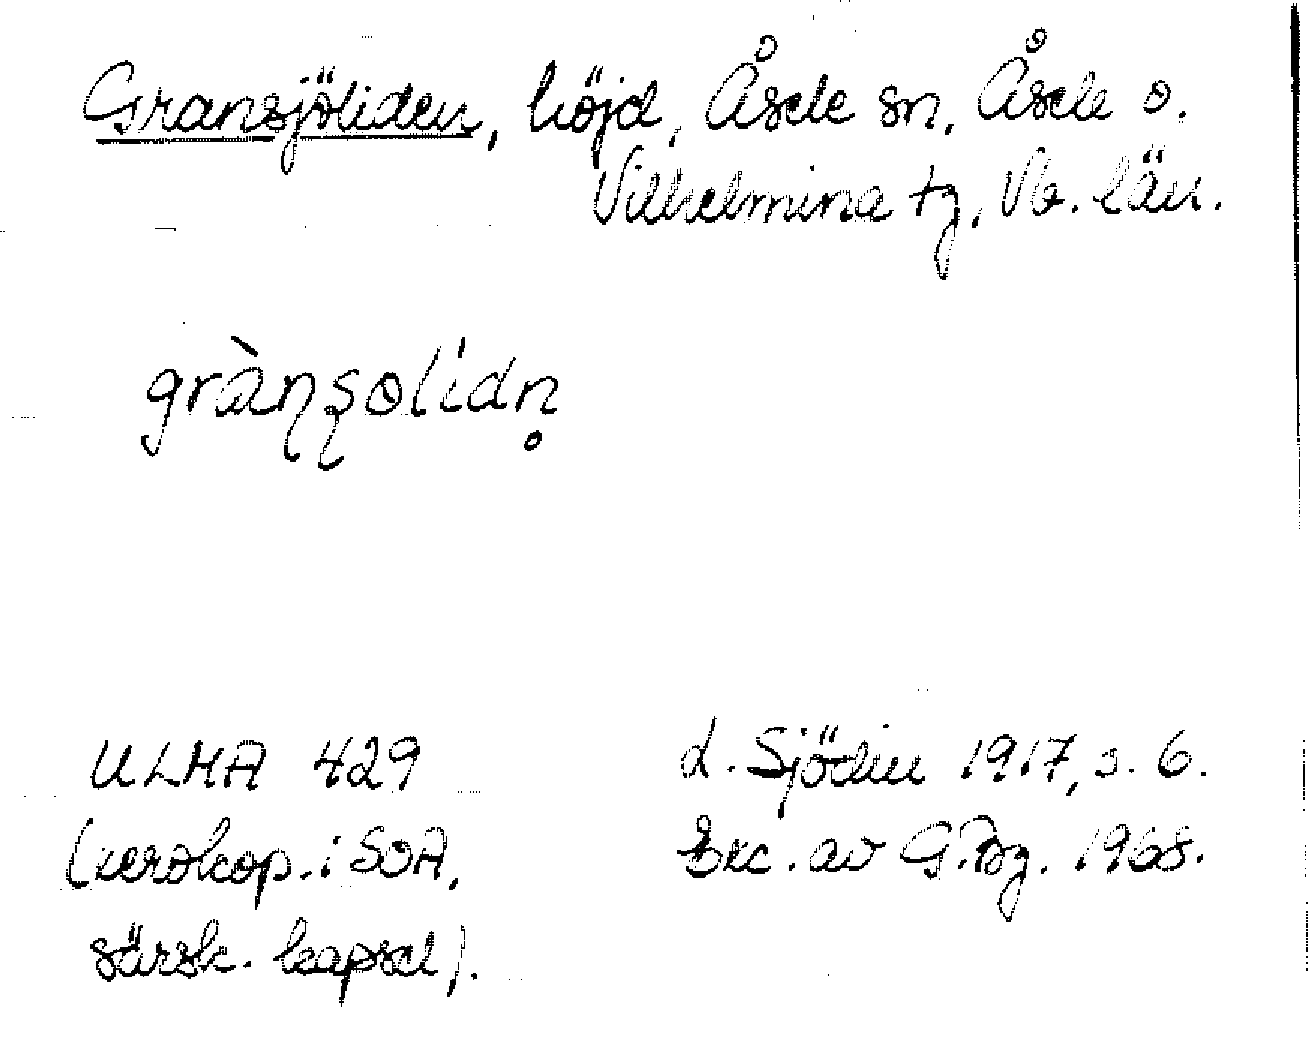 Gransjöliden, höjd, Åsele sn, Åsele o.
Vilhelmina tg, Vb. län.
grànʂolidn̥
ULMA 429
(xerokop. i SOA,
särsk. kapsel).
d. Sjödin 1917, s. 6.
Exc. av 1968.